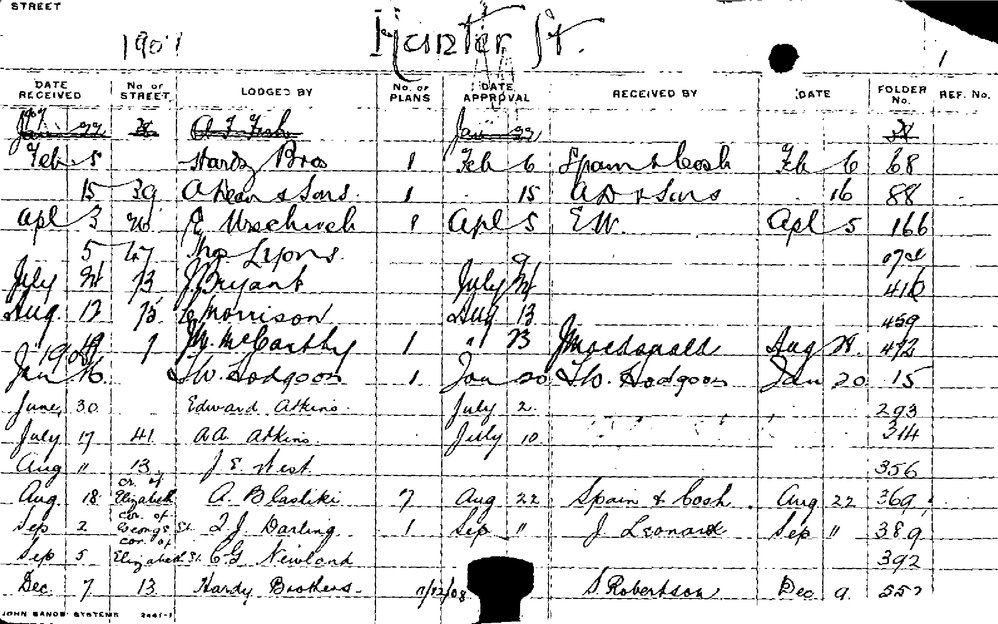 STREET
1907 Hunter St. 1
DATE RECEIVED No. OF STREET. LODGED BY No. OF PLANS DATE APPROVAL RECEIVED BY DATE FOLDER No. REF. No.
Jan 22 A. T. Fish Jan 22
Feb 5 Hardy Bros 1 Feb 6 Spain & Cosh Feb 6 68
15 39 A Dean & Sons. 1 15 A D & Sons 16 88
Apl 3 26 E 1 Apl 5 E W. Apl 5 166
5 47 Thos Lyons. 9
July 24 73 J Bryant July 24 416
Aug. 12 75 E Morrison Aug 13 459
1 J M. McCarthy 1 " 23 Aug 28. 472
1908
Jan 16 T. W. Hodgson 1. Jan 20 T. W. Hodgson Jan 20 15
June, 30. Edward Atkins. July 2. 293
July 17 41. A A. Atkins July 10. 314
Aug " 13. J. E. West. 356
Aug. 18. cr. of Elizabeth A. Blashki 7 Aug 22 Spain & Cosh. Aug 22 369
Sep 2 cor. of George St. T. J. Darling 1 Sep " J. Leonard Sep " 389
Sep 5 cor. of Elizabeth St. C. G. Newland 392
Dec. 7 13. Hardy Brothers. 7/12/08 S. Robertson Dec 9. 557
JOHN SANDS' SYSTEMS